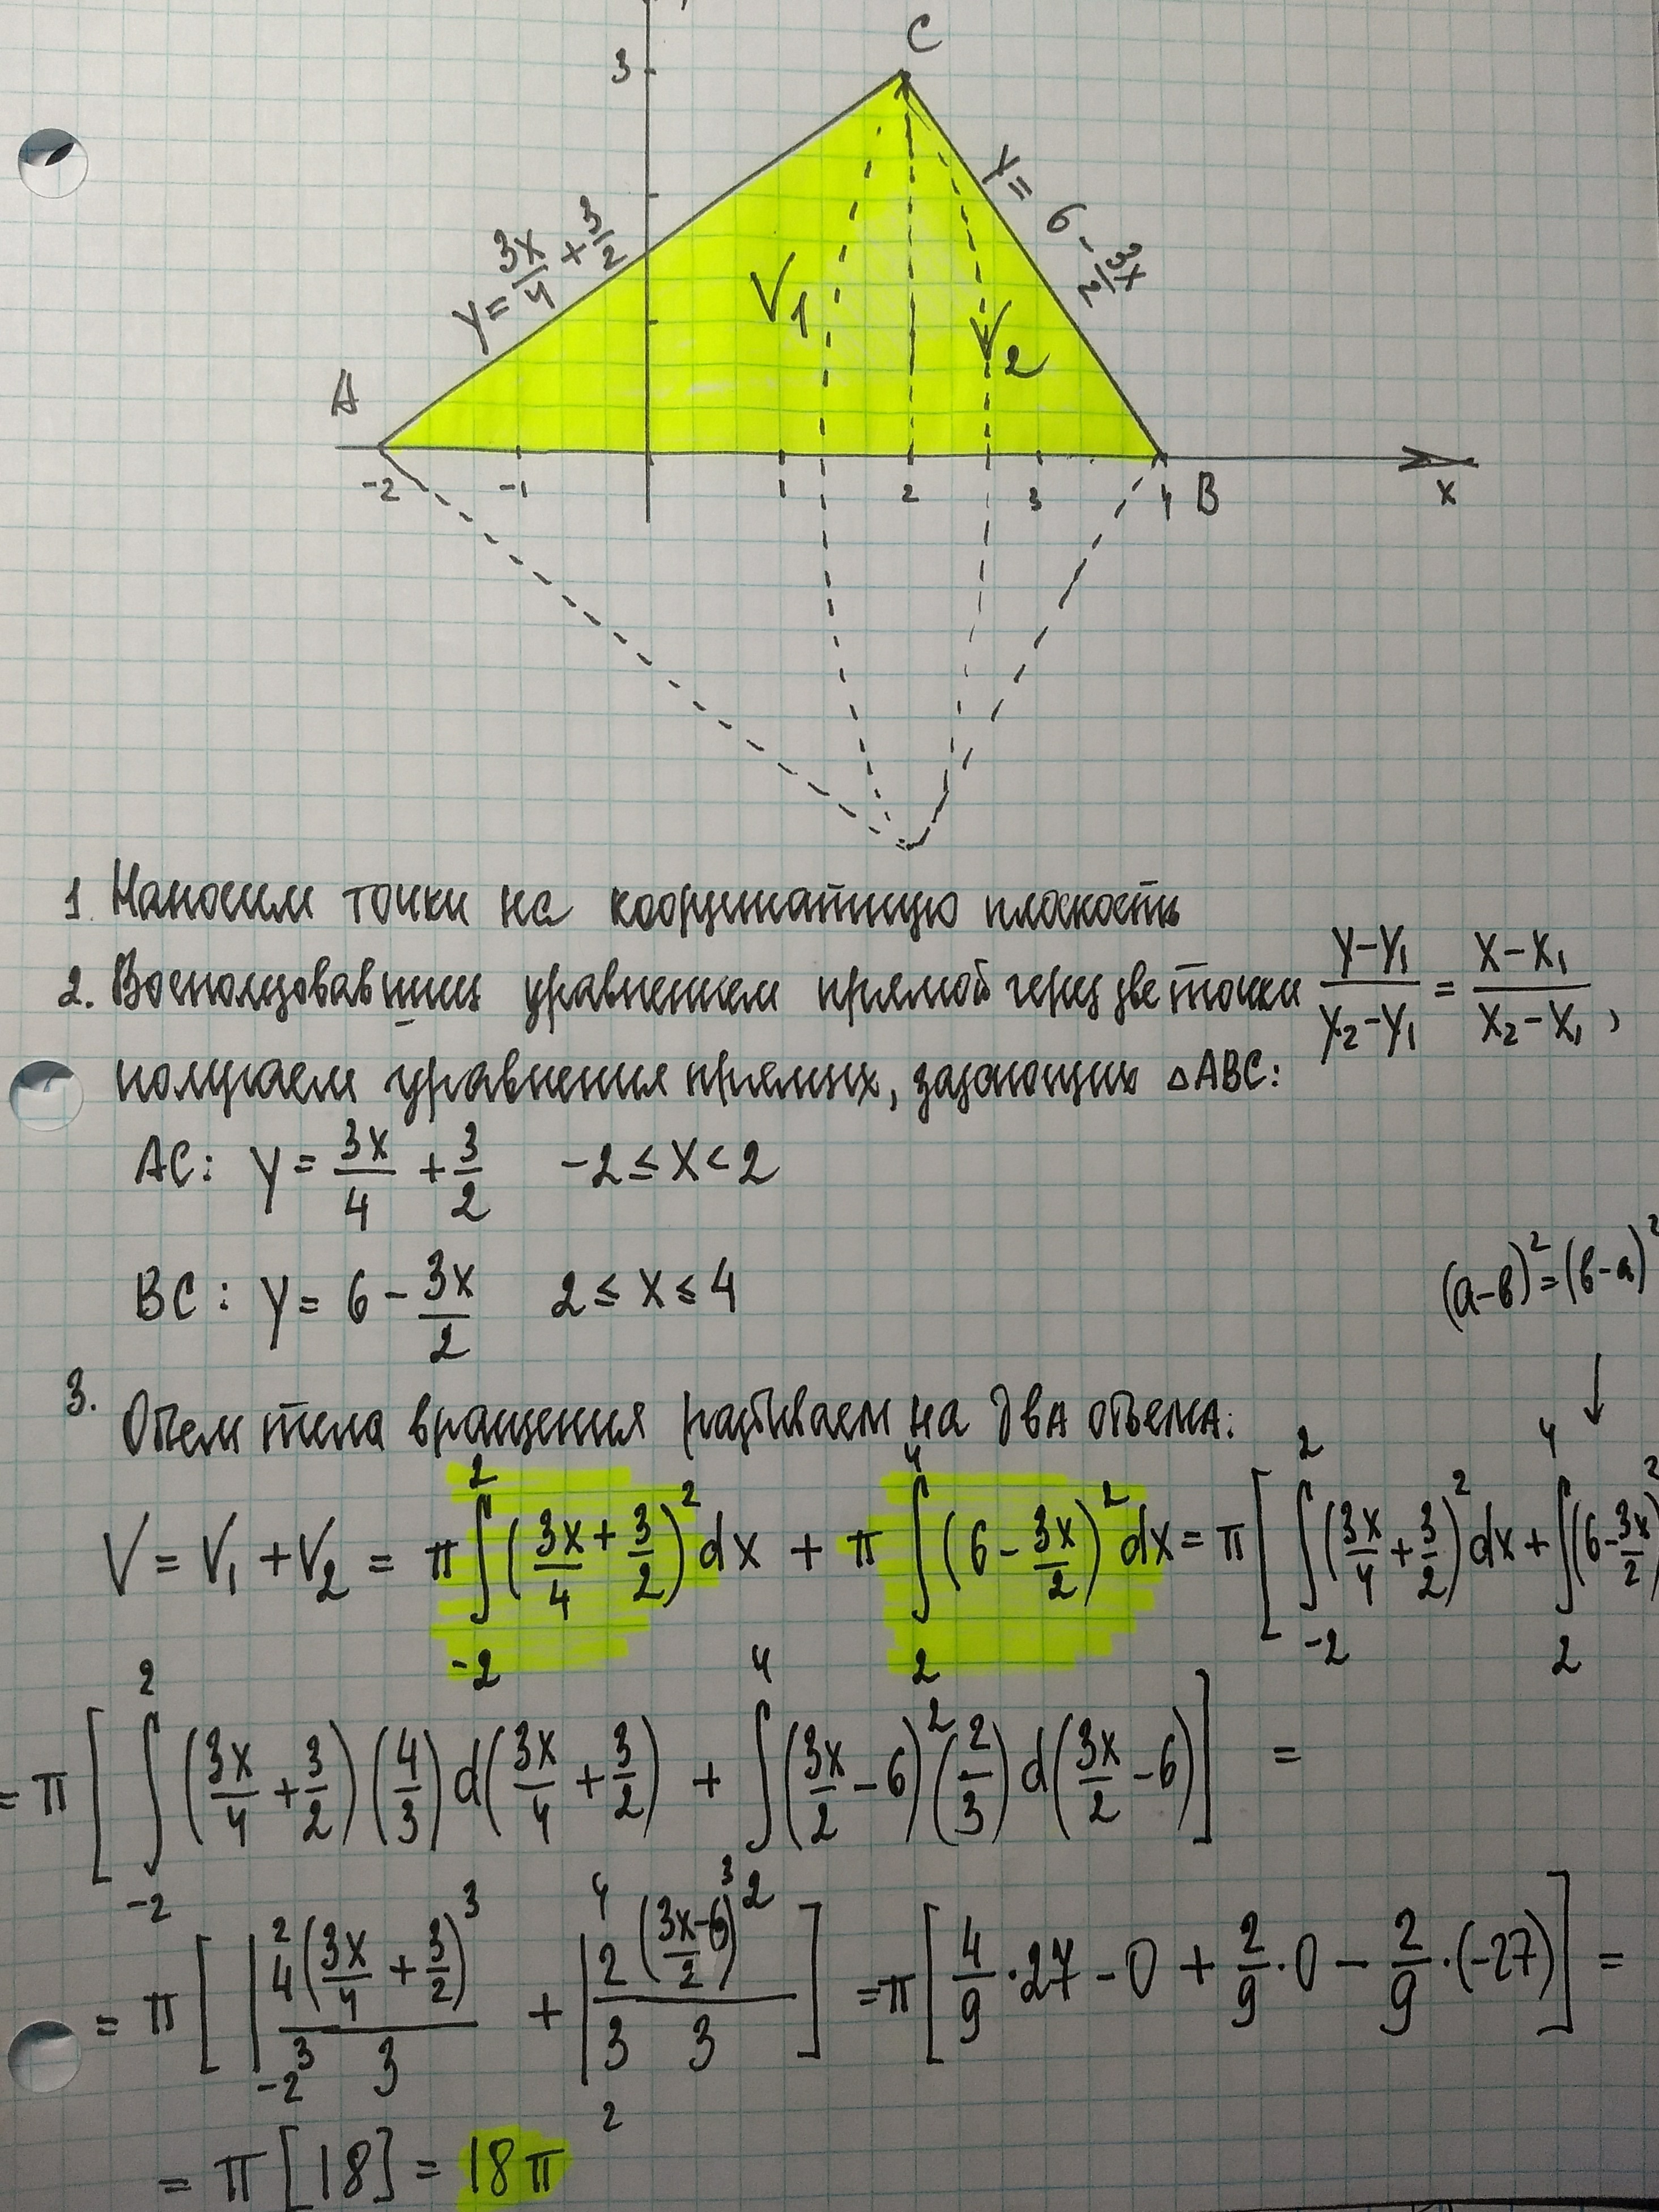 C
3
y = 3x/4 + 3/2
y = 6 - 3x/2
V₁
V₂
A
-2 -1 1 2 3 4 B x
1. Наносим точки на координатную плоскость
2. Воспользовавшись уравнением прямой через две точки (y-y₁)/(y₂-y₁) = (x-x₁)/(x₂-x₁),
получаем уравнения прямых, задающих △ABC:
AC: y = 3x/4 + 3/2 -2 ≤ x < 2
BC: y = 6 - 3x/2 2 ≤ x ≤ 4
(a-в)² = (в-a)²
↓
3. Объем тела вращения разбиваем на два объема:
V = V₁ + V₂ = π ∫₋₂² (3x/4 + 3/2)² dx + π ∫₂⁴ (6 - 3x/2)² dx = π [ ∫₋₂² (3x/4 + 3/2)² dx + ∫₂⁴ (6 - 3x/2)²
= π [ ∫₋₂² (3x/4 + 3/2) (4/3) d(3x/4 + 3/2) + ∫₂⁴ (3x/2 - 6)² (2/3) d(3x/2 - 6) ] =
= π [ |₋₂² 4/3 (3x/4 + 3/2)³/3 + |₂⁴ 2/3 (3x/2 - 6)³/3 ] = π [ 4/9 · 27 - 0 + 2/9 · 0 - 2/9 · (-27) ] =
= π [18] = 18π